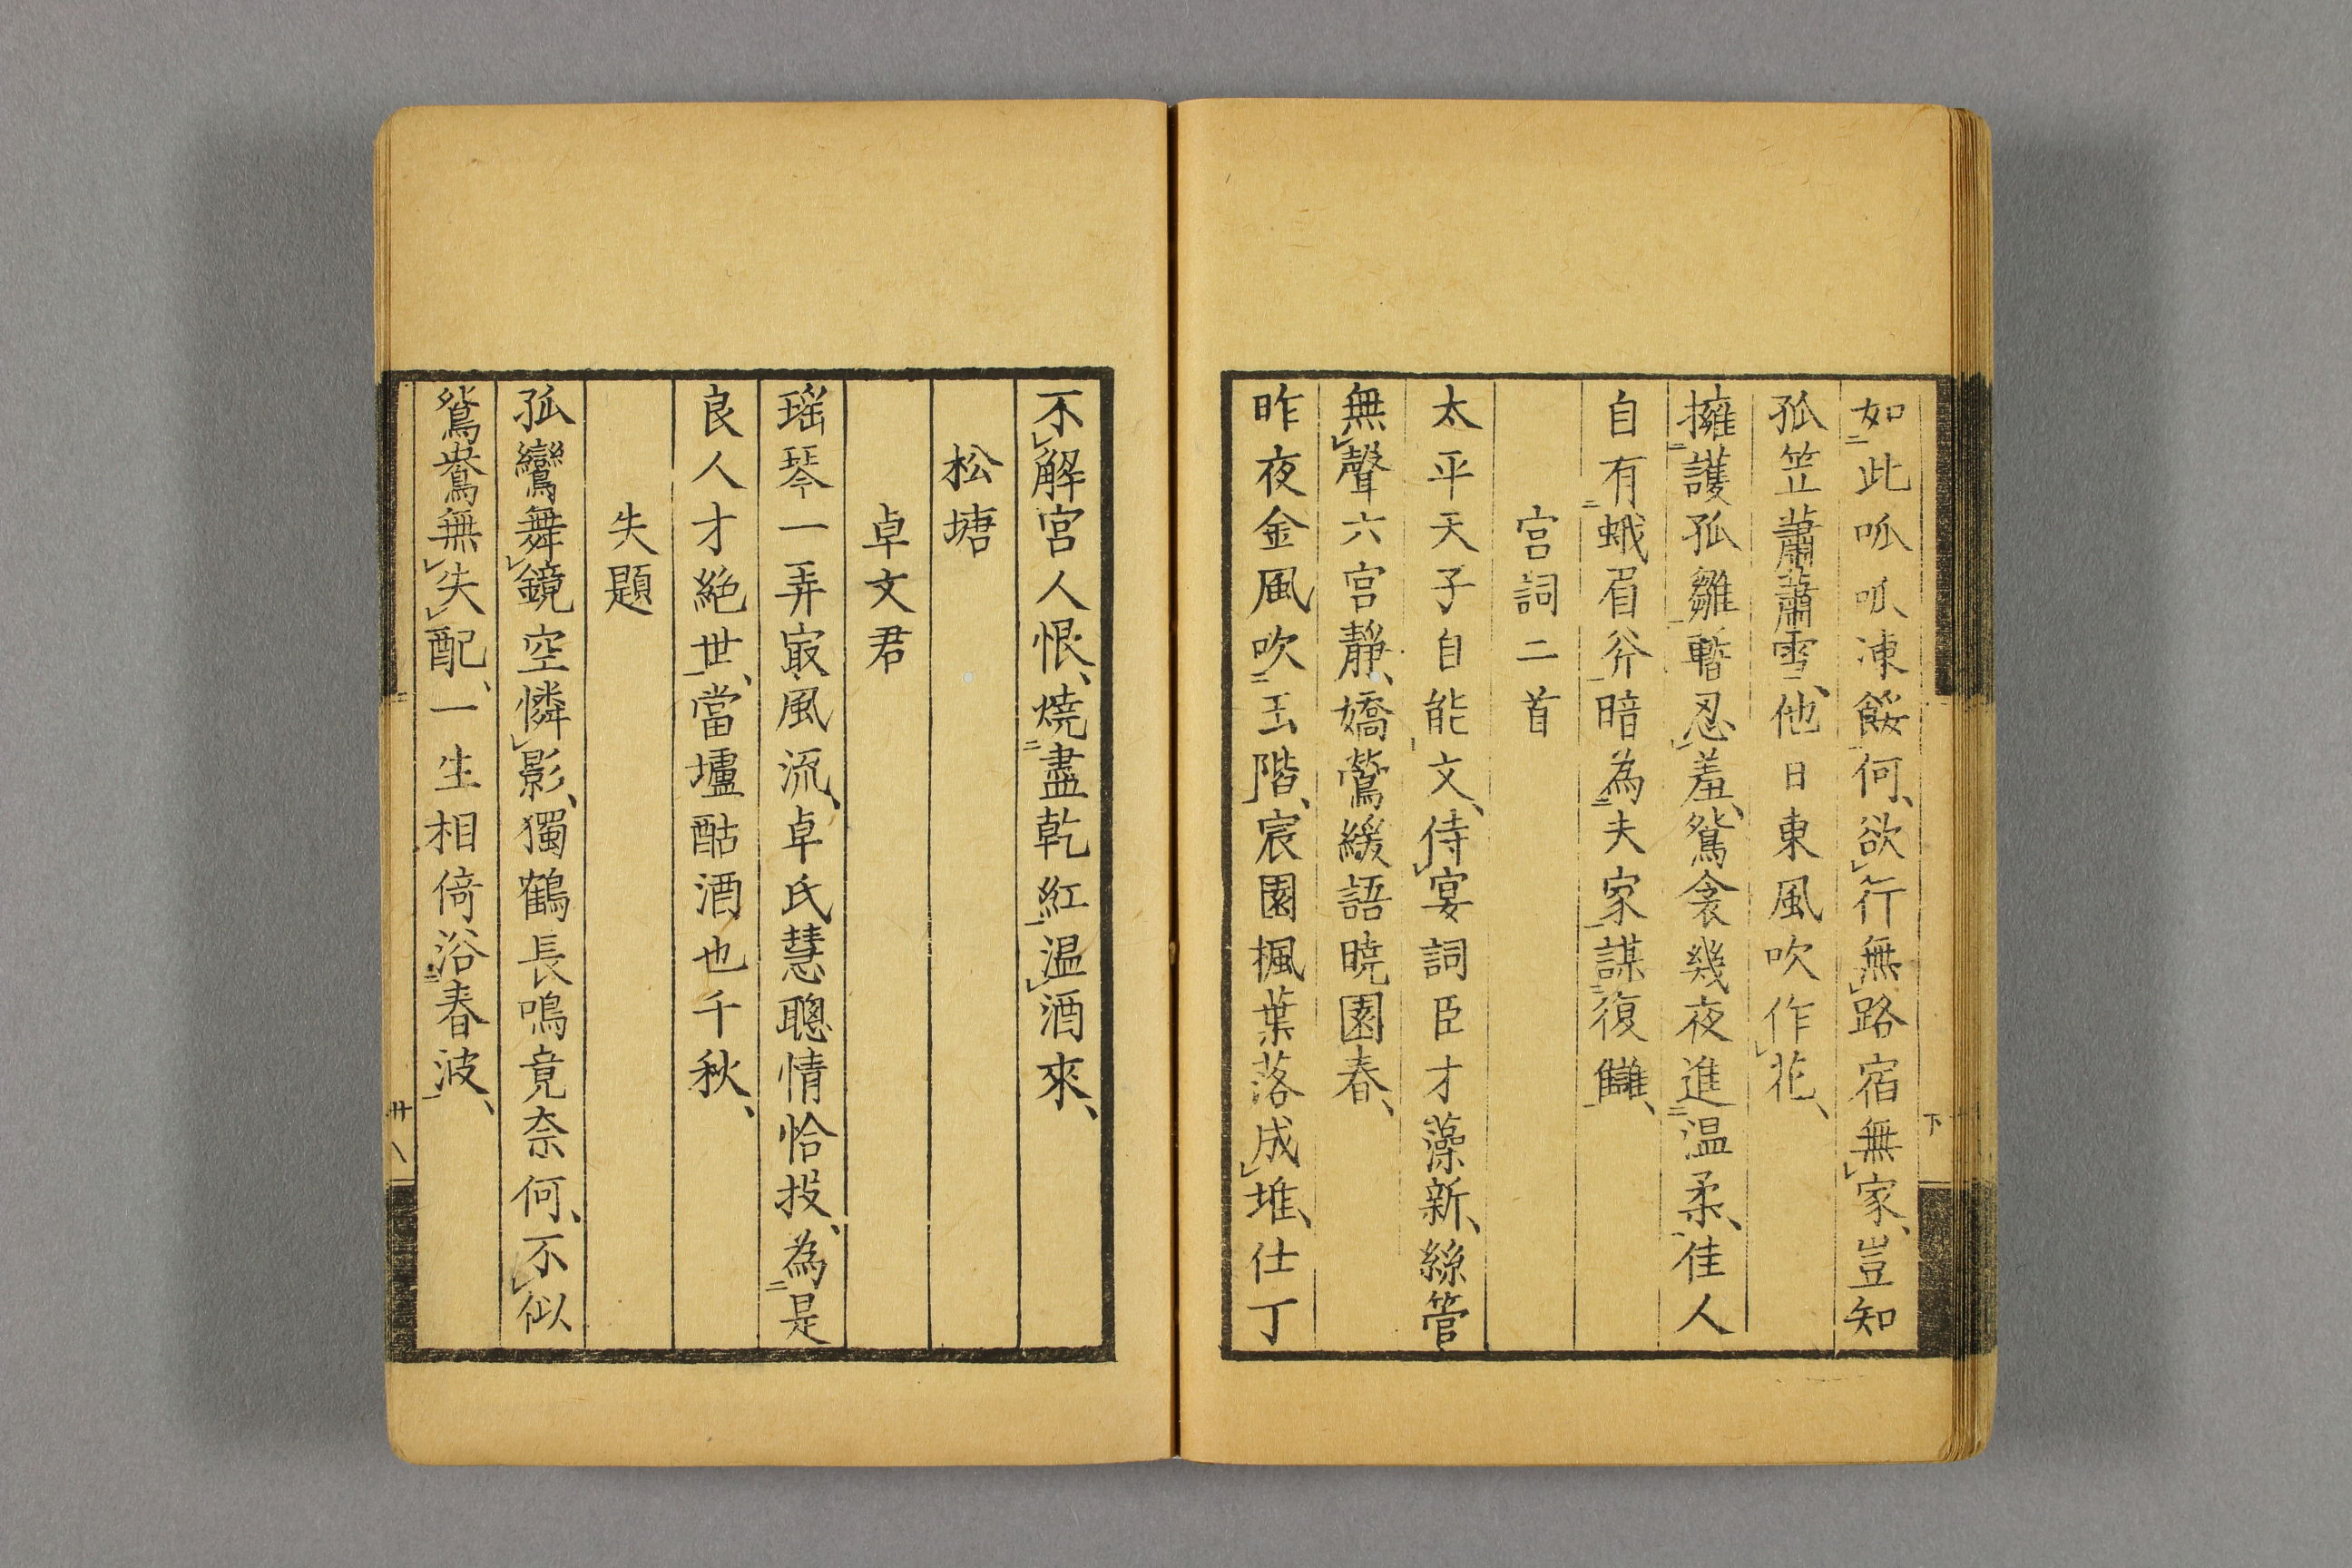 如此呱呱凍餒何、欲行無路宿無家、豈知
孤笠蕭蕭雪、他日東風吹作花、
擁護孤雛暫忍羞、鴛衾幾夜進温柔、佳人
自有蛾眉斧暗為夫家謀復讎、
宮詞二首
太平天子自能文、侍宴詞臣才藻新、絲管
無聲六宮靜、嬌鶯緩語曉園春、
昨夜金風吹玉階、宸園楓葉落成堆、仕丁
下
不解宮人恨、燒盡乾紅温酒來、
松塘
卓文君
瑤琴一弄寂風流、卓氏慧聰情恰投、為是
良人才絕世、當壚酤酒也千秋、
失題
孤鸞舞鏡空憐影、獨鶴長鳴竟奈何、不似
鴛鴦無失配、一生相倚浴春波、
卅八